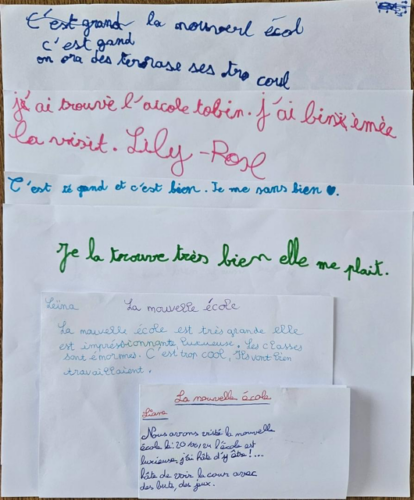 C'est grand la nouverl écol
c'est gand
on ora des terrase ses tro coul
j'ai trouvè l'aicole tobin. j'ai bin èmèe
la visit. Lily-Rose
C'est gand et c'est bien. Je me sans bien ♥.
Je la trouve très bien elle me plait.
Leïna La nouvelle école
La nouvelle école est très grande elle
est impressionnante luxueuse. Les classes
sont énormes. C'est trop cool, Ils vont bien
travaillaient.
La nouvelle école
Nous avons visité la nouvelle
école l'école est
luxieuse, j'ai hâte d'y être !...
hâte de voir la cour avec
des buts, des jeux.